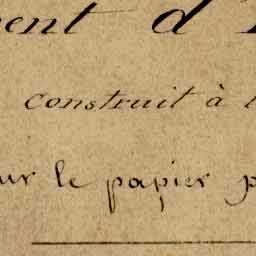 ent d'
construit à
ur le papier p